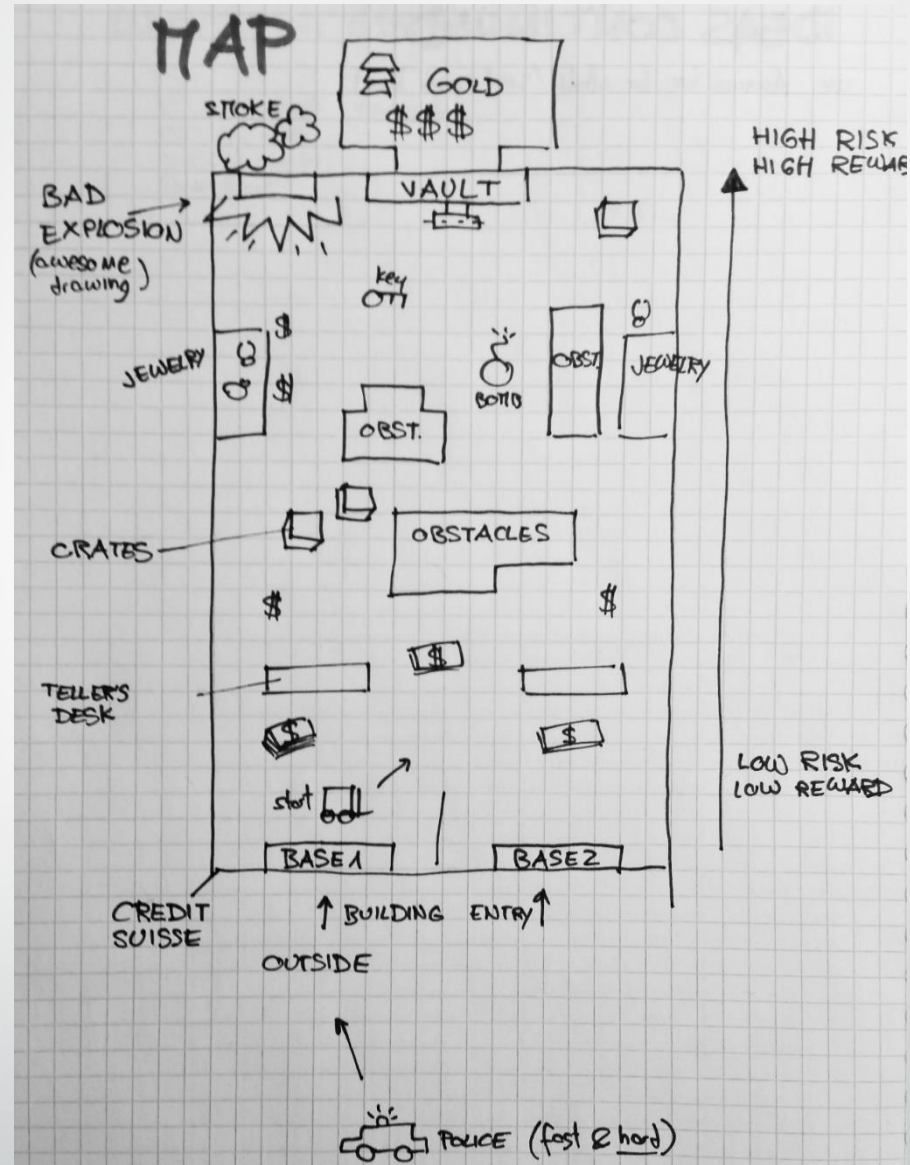 MAP
SMOKE
GOLD
$$$
HIGH RISK
HIGH REWARD
VAULT
BAD
EXPLOSION
(awesome
drawing)
key
$
JEWELRY
$
BOMB
OBST.
JEWELRY
OBST.
CRATES
OBSTACLES
$
$
$
TELLER'S
DESK
$
$
LOW RISK
LOW REWARD
start
BASE 1
BASE 2
CREDIT
SUISSE
BUILDING ENTRY
OUTSIDE
POLICE (fast & hard)